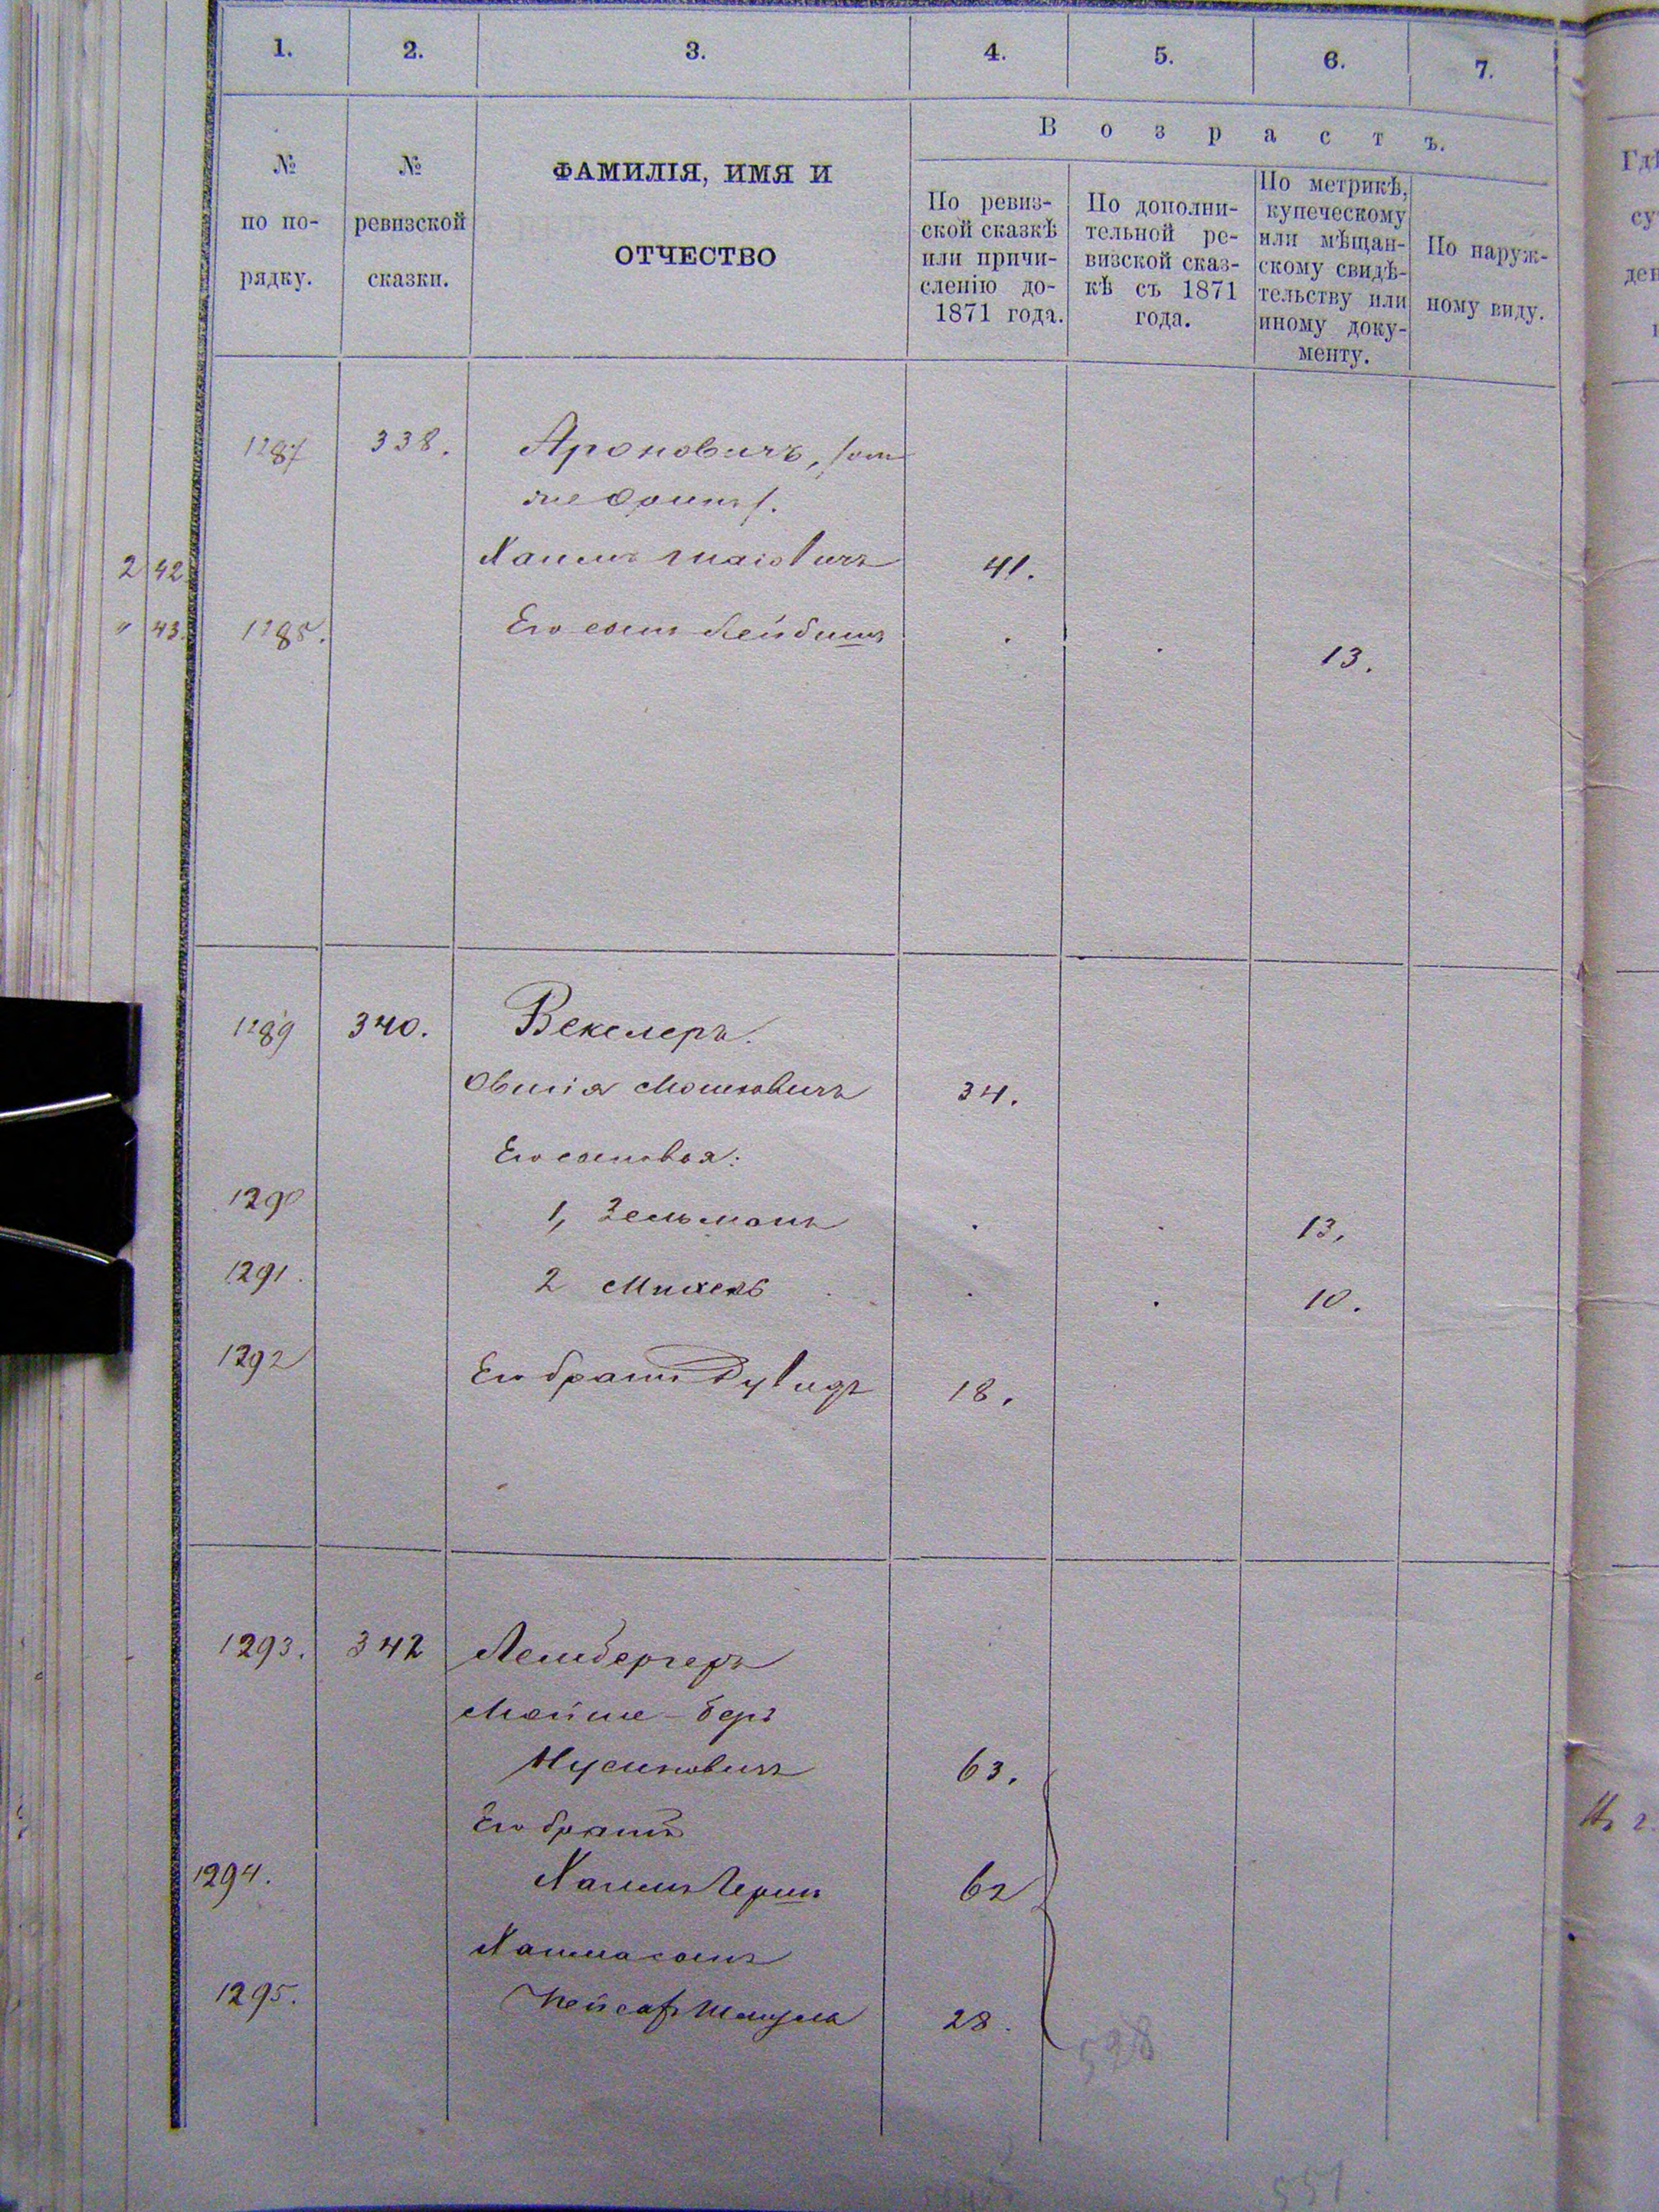 1. 2. 3. 4. 5. 6. 7.
№ по по- рядку.
№ ревизской сказки.
ФАМИЛІЯ, ИМЯ И
ОТЧЕСТВО
Возрастъ.
По ревиз-
ской сказкѣ
или причи-
сленію до-
1871 года.
По дополни-
тельной ре-
визской сказ-
кѣ съ 1871
года.
По метрикѣ,
купеческому
или мѣщан-
скому свидѣ-
тельству или
иному доку-
менту.
По наруж-
ному виду.
1287 338. Ароновичъ,
2 42 Хаимъ 41.
" 43. 1288. Его сынъ Лейбишъ 13.
1289 340. Векслеръ.
Овшія Мошковичъ 34.
Его сыновья:
1290 1, Зельманъ 13.
1291. 2 Михель 10.
1292 Его братъ Дувидъ 18.
1293. 342 Лембергеръ
Мойше-Беръ
Нусиновичъ 63.
Его братъ
1294. Хаимъ Гершъ 62
Хаима сынъ
1295. Шмуль 28.
528
551